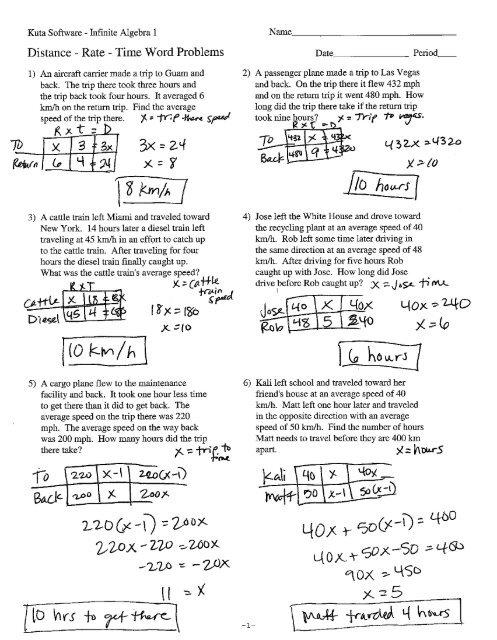 Kuta Software - Infinite Algebra 1
Name
Distance - Rate - Time Word Problems
Date Period
1) An aircraft carrier made a trip to Guam and
back. The trip there took three hours and
the trip back took four hours. It averaged 6
km/h on the return trip. Find the average
speed of the trip there. x = trip there speed
R x t = D
To x 3 = 3x
Return 6 4 = 24
3x = 24
x = 8
8 km/h
2) A passenger plane made a trip to Las Vegas
and back. On the trip there it flew 432 mph
and on the return trip it went 480 mph. How
long did the trip there take if the return trip
took nine hours? x = Trip to vegas.
R x T = D
To 432 x = 432x
Back 480 9 = 4320
432x = 4320
x = 10
10 hours
3) A cattle train left Miami and traveled toward
New York. 14 hours later a diesel train left
traveling at 45 km/h in an effort to catch up
to the cattle train. After traveling for four
hours the diesel train finally caught up.
What was the cattle train's average speed?
x = cattle
train
speed
R x T
Cattle x 18 = 18x
Diesel 45 4 = 180
18x = 180
x = 10
10 km/h
4) Jose left the White House and drove toward
the recycling plant at an average speed of 40
km/h. Rob left some time later driving in
the same direction at an average speed of 48
km/h. After driving for five hours Rob
caught up with Jose. How long did Jose
drive before Rob caught up? x = Jose time
Jose 40 x 40x
Rob 48 5 240
40x = 240
x = 6
6 hours
5) A cargo plane flew to the maintenance
facility and back. It took one hour less time
to get there than it did to get back. The
average speed on the trip there was 220
mph. The average speed on the way back
was 200 mph. How many hours did the trip
there take? x = trip to
time
To 220 x-1 220(x-1)
Back 200 x 200x
220(x-1) = 200x
220x-220 = 200x
-220 = -20x
11 = x
10 hrs to get there
6) Kali left school and traveled toward her
friend's house at an average speed of 40
km/h. Matt left one hour later and traveled
in the opposite direction with an average
speed of 50 km/h. Find the number of hours
Matt needs to travel before they are 400 km
apart. x = hours
Kali 40 x 40x
Matt 50 x-1 50(x-1)
40x + 50(x-1) = 400
40x + 50x-50 = 400
90x = 450
x = 5
Matt traveled 4 hours
-1-